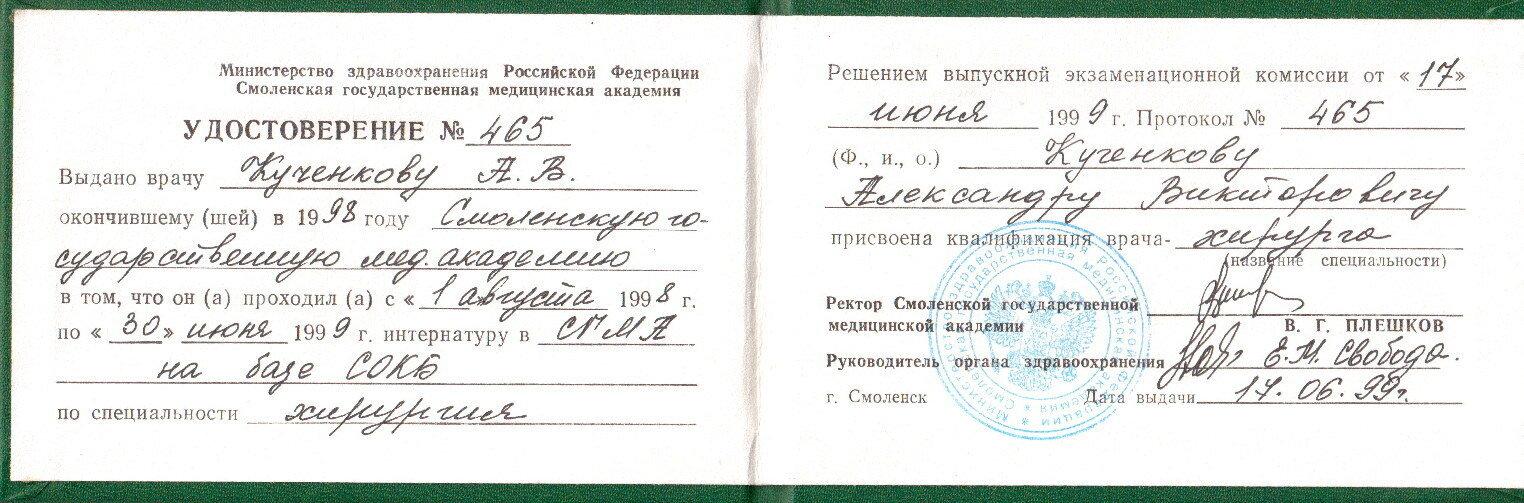 Министерство здравоохранения Российской Федерации
Смоленская государственная медицинская академия
УДОСТОВЕРЕНИЕ № 465
Выдано врачу Кученкову А. В.
окончившему (шей) в 1998 году Смоленскую го-
сударственную мед. академию
в том, что он (а) проходил (а) с « 1 августа 1998 г.
по « 30 » июня 1999 г. интернатуру в СГМА
на базе СОКБ
по специальности хирургия
Решением выпускной экзаменационной комиссии от « 17 »
июня 1999 г. Протокол № 465
(Ф., и., о.) Кученкову
Александру Викторовичу
присвоена квалификация врача- хирурга
(название специальности)
Ректор Смоленской государственной
медицинской академии
В. Г. ПЛЕШКОВ
Руководитель органа здравоохранения Е.М. Свобода.
г. Смоленск Дата выдачи 17. 06. 99г.